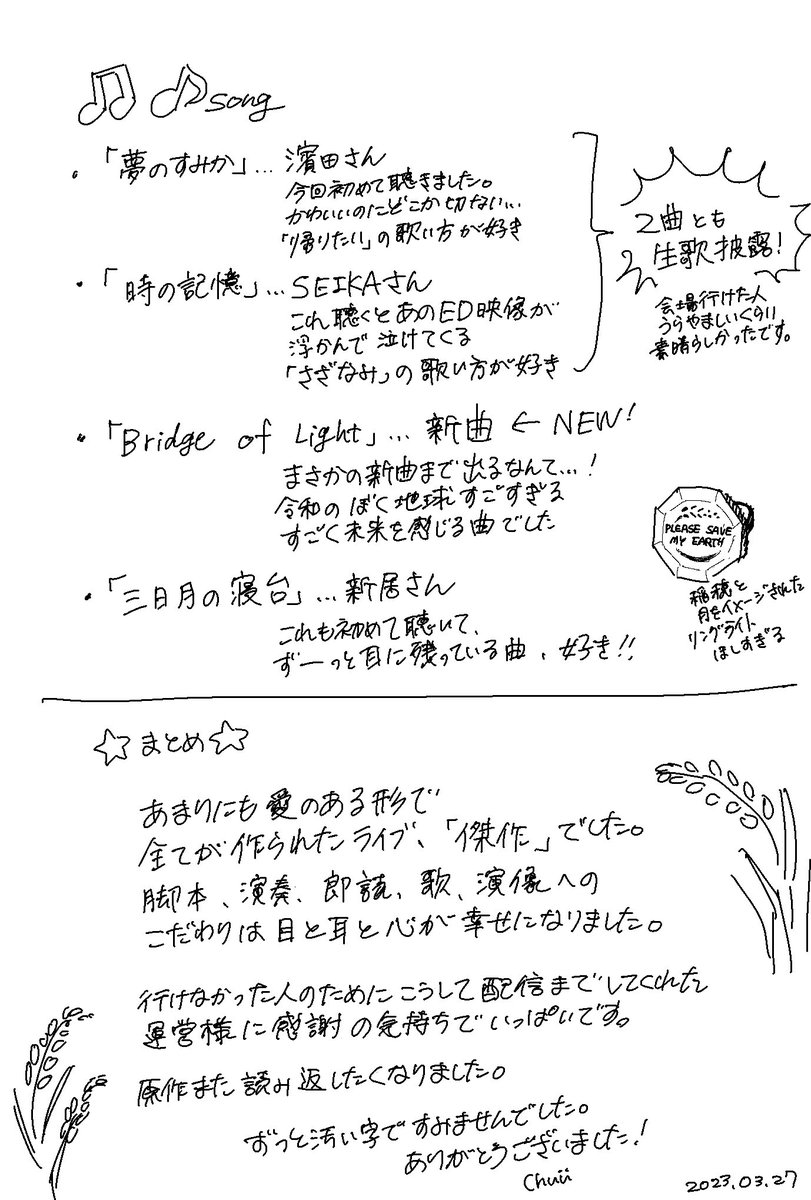 song
・「夢のすみか」… 濱田さん
今回初めて聴きました。
かわいいのにどこか切ない…
「帰りたい」の歌い方が好き
・「時の記憶」… SEIKAさん
これ聴くとあのED映像が
浮かんで泣けてくる
「さざなみ」の歌い方が好き
2曲とも
生歌披露!
会場行けた人
うらやましいくらい
素晴らしかったです。
・「Bridge of Light」… 新曲 ← NEW!
まさかの新曲まで出るなんて…!
令和のぼく地球すごすぎる
すごく未来を感じる曲でした
PLEASE SAVE
MY EARTH
稲穂と
月をイメージされた
リングライト
ほしすぎる
・「三日月の寝台」… 新居さん
これも初めて聴いて、
ずーっと耳に残っている曲、好き!!
☆まとめ☆
あまりにも愛のある形で
全てが作られたライブ、「傑作」でした。
脚本、演奏、朗読、歌、演像への
こだわりは目と耳と心が幸せになりました。
行けなかった人のためにこうして配信までしてくれた
運営様に感謝の気持ちでいっぱいです。
原作また読み返したくなりました。
ずっと汚い字ですみませんでした。
ありがとうございました!
Chuii
2023.03.27